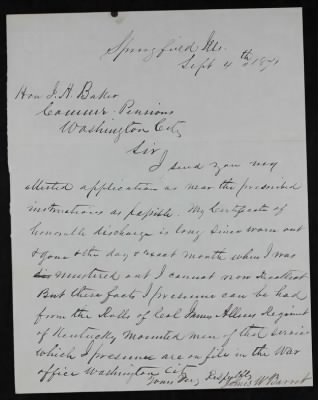 Springfield Ills.
Sept 4th 1871
Hon J. H. Baker
Commr. Pensions
Washington City
Sir,
I send you my
attested application as near the prescribed
instructions as possible. My Certificate of
honorable discharge is long since worn out
& gone & the day & exact month when I was
mustered out I cannot now recollect
But these facts I presume can be had
from the Rolls of Col James Allens Regiment
of Kentucky mounted men of that service
which I presume are on file in the War
office Washington City
Yours Very Respectfully
James W Barret